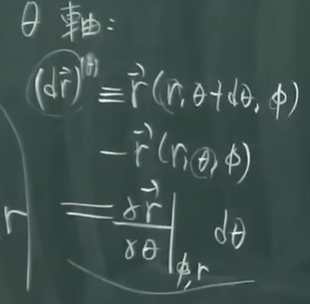 θ 軸:
(d\vec{r})^{(θ)} ≡ \vec{r}(r, θ+dθ, ϕ)
− \vec{r}(r, θ, ϕ)
r
= \frac{∂\vec{r}}{∂θ}|_{ϕ,r} dθ